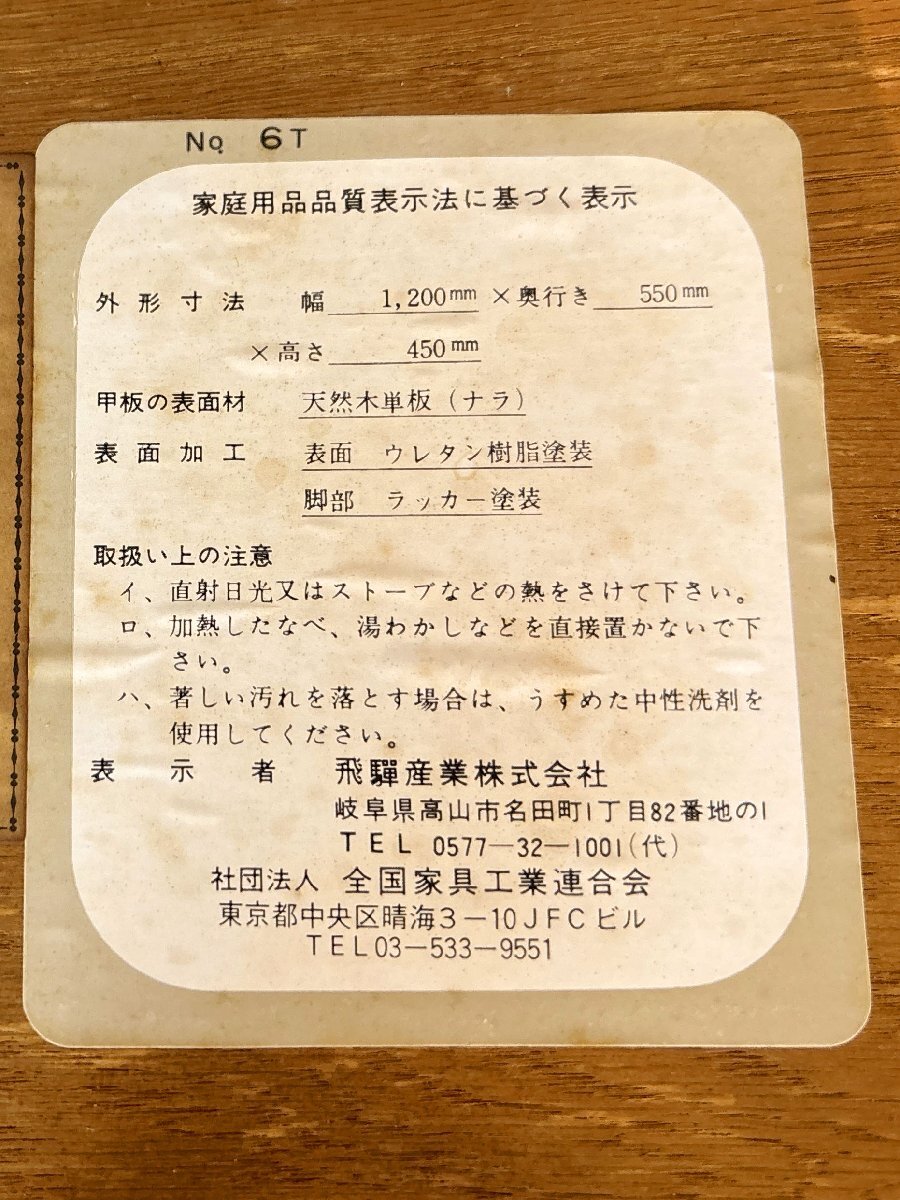 No. 6T
家庭用品品質表示法に基づく表示
外形寸法 幅 1,200mm ×奥行き 550mm
×高さ 450mm
甲板の表面材 天然木単板（ナラ）
表面加工 表面 ウレタン樹脂塗装
脚部 ラッカー塗装
取扱い上の注意
イ、直射日光又はストーブなどの熱をさけて下さい。
ロ、加熱したなべ、湯わかしなどを直接置かないで下
さい。
ハ、著しい汚れを落とす場合は、うすめた中性洗剤を
使用してください。
表示者 飛驒産業株式会社
岐阜県高山市名田町1丁目82番地の1
TEL 0577―32―1001(代)
社団法人 全国家具工業連合会
東京都中央区晴海3－10JFCビル
TEL03―533―9551